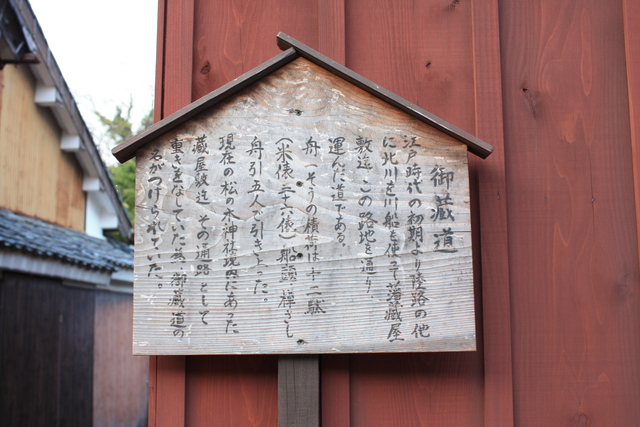 御蔵道
江戸時代の初期より陸路の他
に北川を川船を使って藩蔵屋
敷迄この路地を通り、
運んだ道である。
舟一そうの積荷は十二駄
(米俵三十六俵)船頭一棹さし
舟引五人で引き上った。
現在の松の木神社境内にあった
蔵屋敷迄、その通路として
重きをなしていた為、御蔵道の
名がつけられていた。